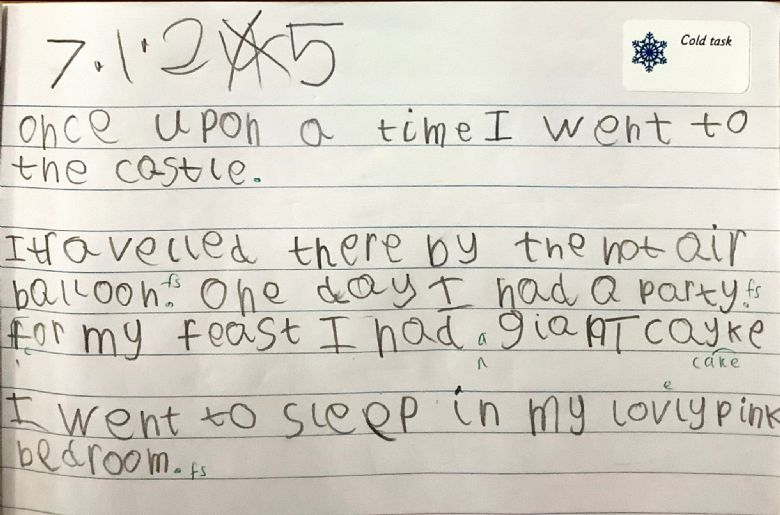 7.1.245
Cold task
once upon a time I went to
the castle.
I travelled there by the hot air
balloon. fs One day I had a party. fs
for my feast I had a giaNT cayke
cake
e
I went to sleep in my lovly pink
bedroom. fs